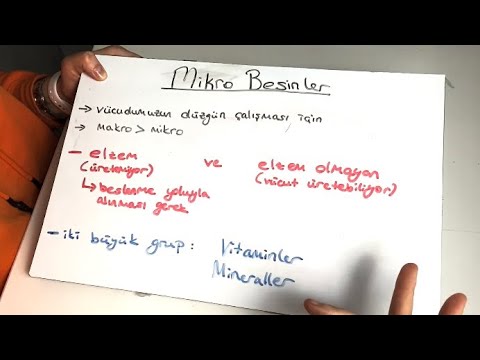 Mikro Besinler
→ vücudumuzun düzgün çalışması için
→ makro > mikro
- elzem ve elzem olmayan
(üretemiyor) (vücut üretebiliyor)
↳ beslenme yoluyla
alınması gerek
- iki büyük grup: Vitaminler
Mineraller